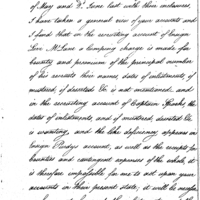 of May and 1st June last with their inclosures,
I have taken a general view of your accounts and
I find that in the recruiting account of Ensign
Levi McLean a lumping charge is made for
bounty and premium of the principal number
of his recruits their names, dates of enlistments of
mustered, of deserted &c. is not mentioned, and
in the recruiting account of Captain Sparks the
dates of enlistments, and of mustered, deserted &c.
is wanting, and the like deficiency appears in
Ensign Purdys account, as well as the receipts for
bounties and contingent expenses of the whole, it
is therefore impossible for me to act upon your
accounts in their present state, it will be necessary